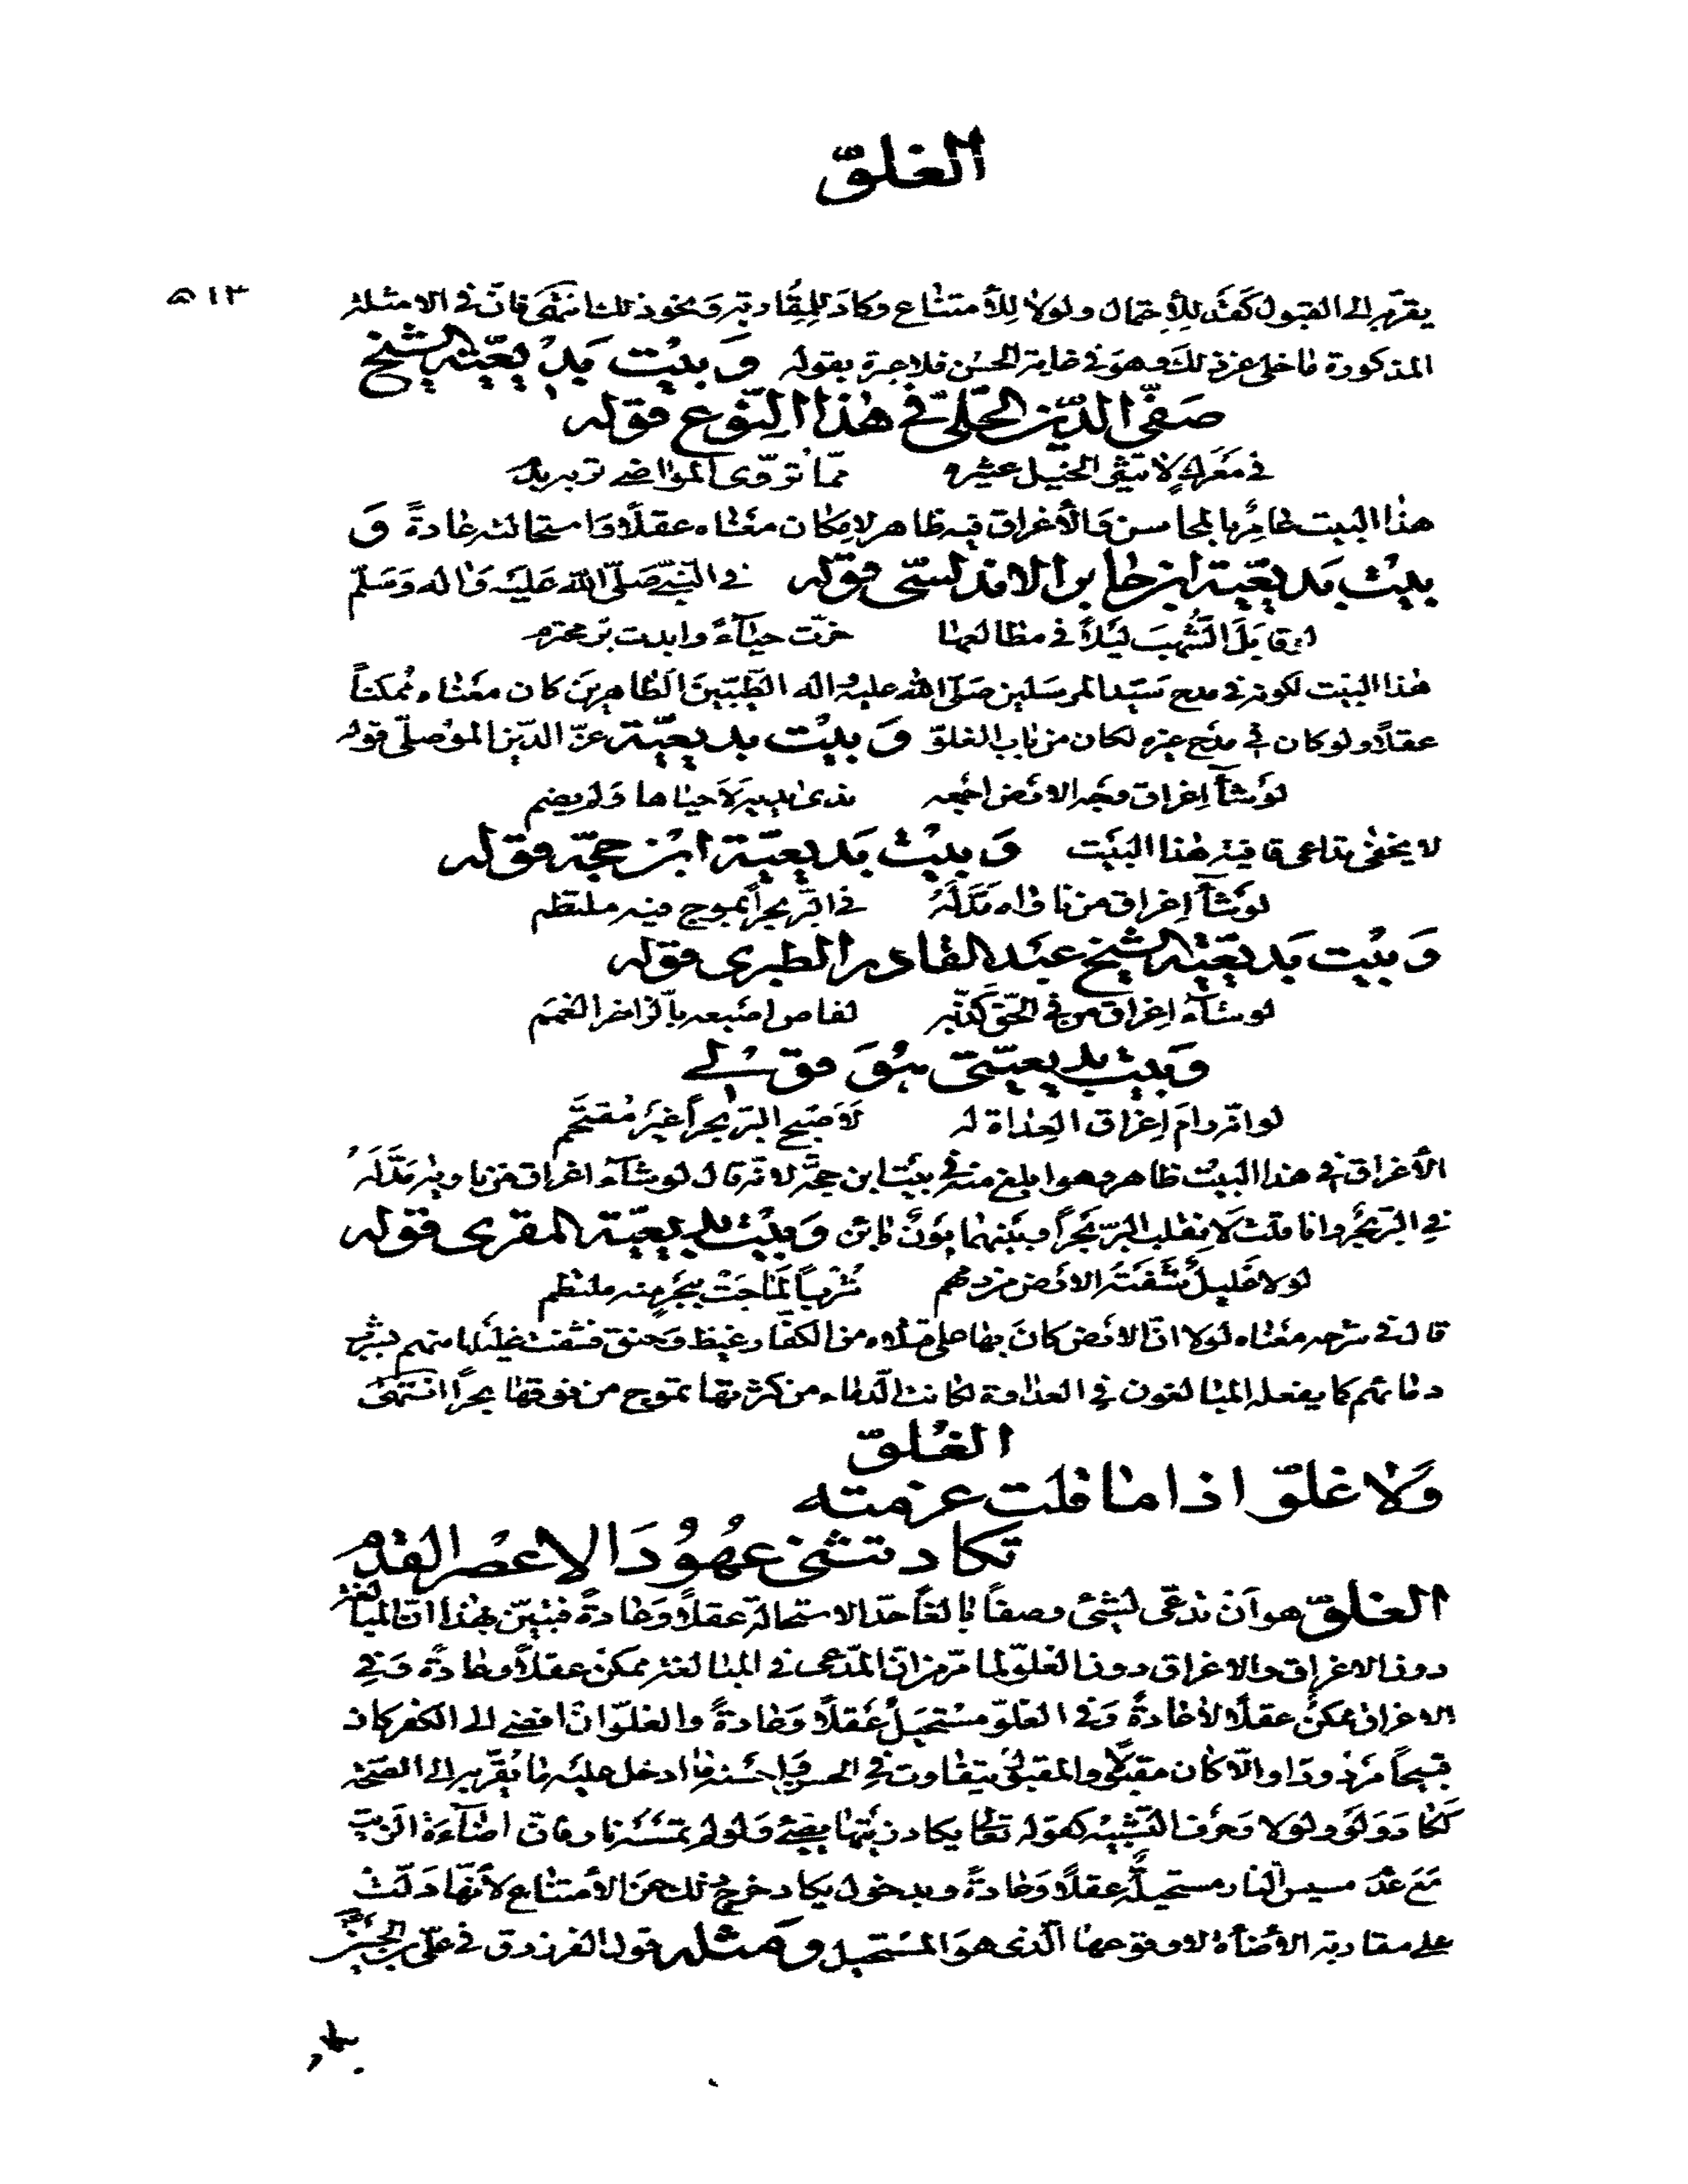 الغلوّ
٥١٣
يقرّبه الى القبول كقد للأحتمال ولولا للأمتناع وكاد للمقاربة ونحو ذلك انتهى فانّ في الامثلة
المذكورة ما خلى عن ذلك وهو في غاية الحسن فلا عبرة بقوله وبيت بديعيّة الشيخ
صفىّ الدّين الحلّىّ في هذا النّوع قوله
في معرك لا تثير الخيل عثيره ممّا تروّى المواضى تربه بدم
هذا البيت عامر بالمحاسن والأغراق فيه ظاهر لامكان معناه عقلاً واستحالته عادةً و
بيت بديعيّة ابن جابر الاندلسّى قوله في النّبىّ صلّى الله عليه واله وسلّم
لو قابل الشّهب ليلاً في مطالعها خرّت حياءً وابدت برّ محترم
هذا البيت لكونه في مدح سيّد المرسلين صلّى الله عليه واله الطّيّبين الطّاهرين كان معناه ممكناً
عقلاً ولو كان في مدح غيره لكان من باب الغلوّ وبيت بديعيّة عزّ الدّين الموصلّى قوله
لو شآ اغراق وجه الارض اجمعه ندى يديه لاحياها ولم يضم
لا يخفى تداعى قافية هذا البيت وبيت بديعيّة ابن حجّه قوله
لو شآ اغراق من ناواه مدّ له في البرّ بحراً بموج فيه ملتطم
وبيت بديعيّة الشيخ عبد القادر الطبرى قوله
لو شآء اغراق من في الحق كذّبه لفاض اصبعه بالزاخر العمم
وبيت بديعيّتى هو قولى
لو انّه رام اغراق العداة له لأصبح البرّ بحراً غير مقتحم
الأغراق في هذا البيت ظاهر وهو ابلغ منه في بيت ابن حجّة لانّه قال لو شآء اغراق من ناويه مدّ له
في البرّ بحر وانا قلت لانقلب البرّ بحراً وبينهما بون بائن وبيت بديعيّة المقرى قوله
لولا غليل شفته الارض من دمهم شرباً لماجت ببحر منه ملتطم
قال في شرحه معناه لولا انّ الارض كان بها على قتلاه من الكفّار غيظ وحنق فشفت غليلها منهم بشرب
دمائهم كما يفعله المبالغون في العداوة لكانت الّدماء من كثرتها تموج من فوقها بحراً انتهى
الغلوّ
ولا غلوّ اذا ما قلت عزمته
تكاد تثنى عهود الاعصر القدم
الغلوّ هو ان ندّعى لشئ وصفاً بالغاً حدّ الاستحالة عقلاً وعادةً فتبيّن بهذا انّ المبالغة
دون الاغراق والاغراق دون الغلوّ لما مرّ من انّ المدّعى في المبالغة ممكن عقلاً وعادةً وفي
الاغراق ممكن عقلاً لا عادةً وفي الغلوّ مستحيل عقلاً وعادةً والغلوّ ان افضى الى الكفر كان
قبيحاً مردوداً والّا كان مقبولاً والمقبول يتفاوت في الحسن واحسنه ما ادخل عليه ما يقرّبه الى الصّحّة
ككاد ولو ولولا وحرف التّشبيه كقوله تعالى يكاد زيتها يضئ ولو لم تمسسه نار فانّ اضآءة الزّيت
مع عدم مسيس النار مستحيلة عقلاً وعادةً وبدخول يكاد خرج ذلك عن الأمتناع لأنّها دلّت
على مقاربة الأضاءة لا وقوعها الّذى هو المستحيل ومثله قول الفرزدق في علّى بن الحسين